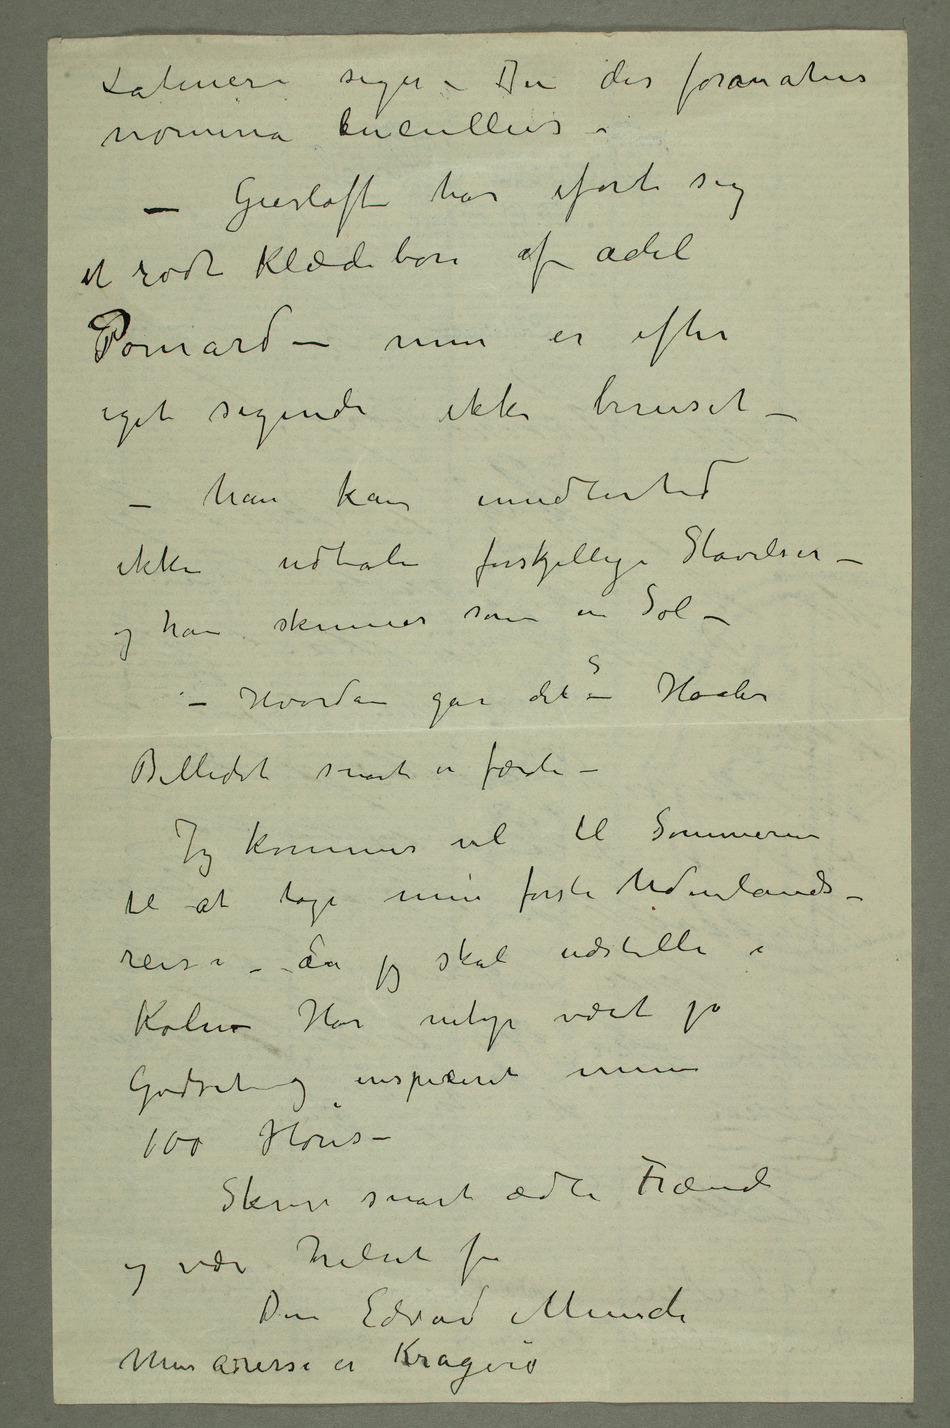 Latinern siger – Du der foranatus
nomina Cucullus –
– Gierløff har iført sig
et rødt Klædebon af adel
Pomard – men er efter
eget sigende ikke beruset –
– han kan imidlertid
ikke udtale forskjellige Stavelser –
og han skinner som en Sol –
– Hvordan går det S – Haaber
Billedet snart er færdi –
Jeg kommer vel til Sommeren
til at tage min første Udenlands-
reise – da jeg skal udstille i
Køln – Har netop vært på
Godset og inspiceret mine
100 Høns –
Skriv snart ædle Frænde
og vær hilset fra
Din Edvard Munch
Min adresse er Kragerø